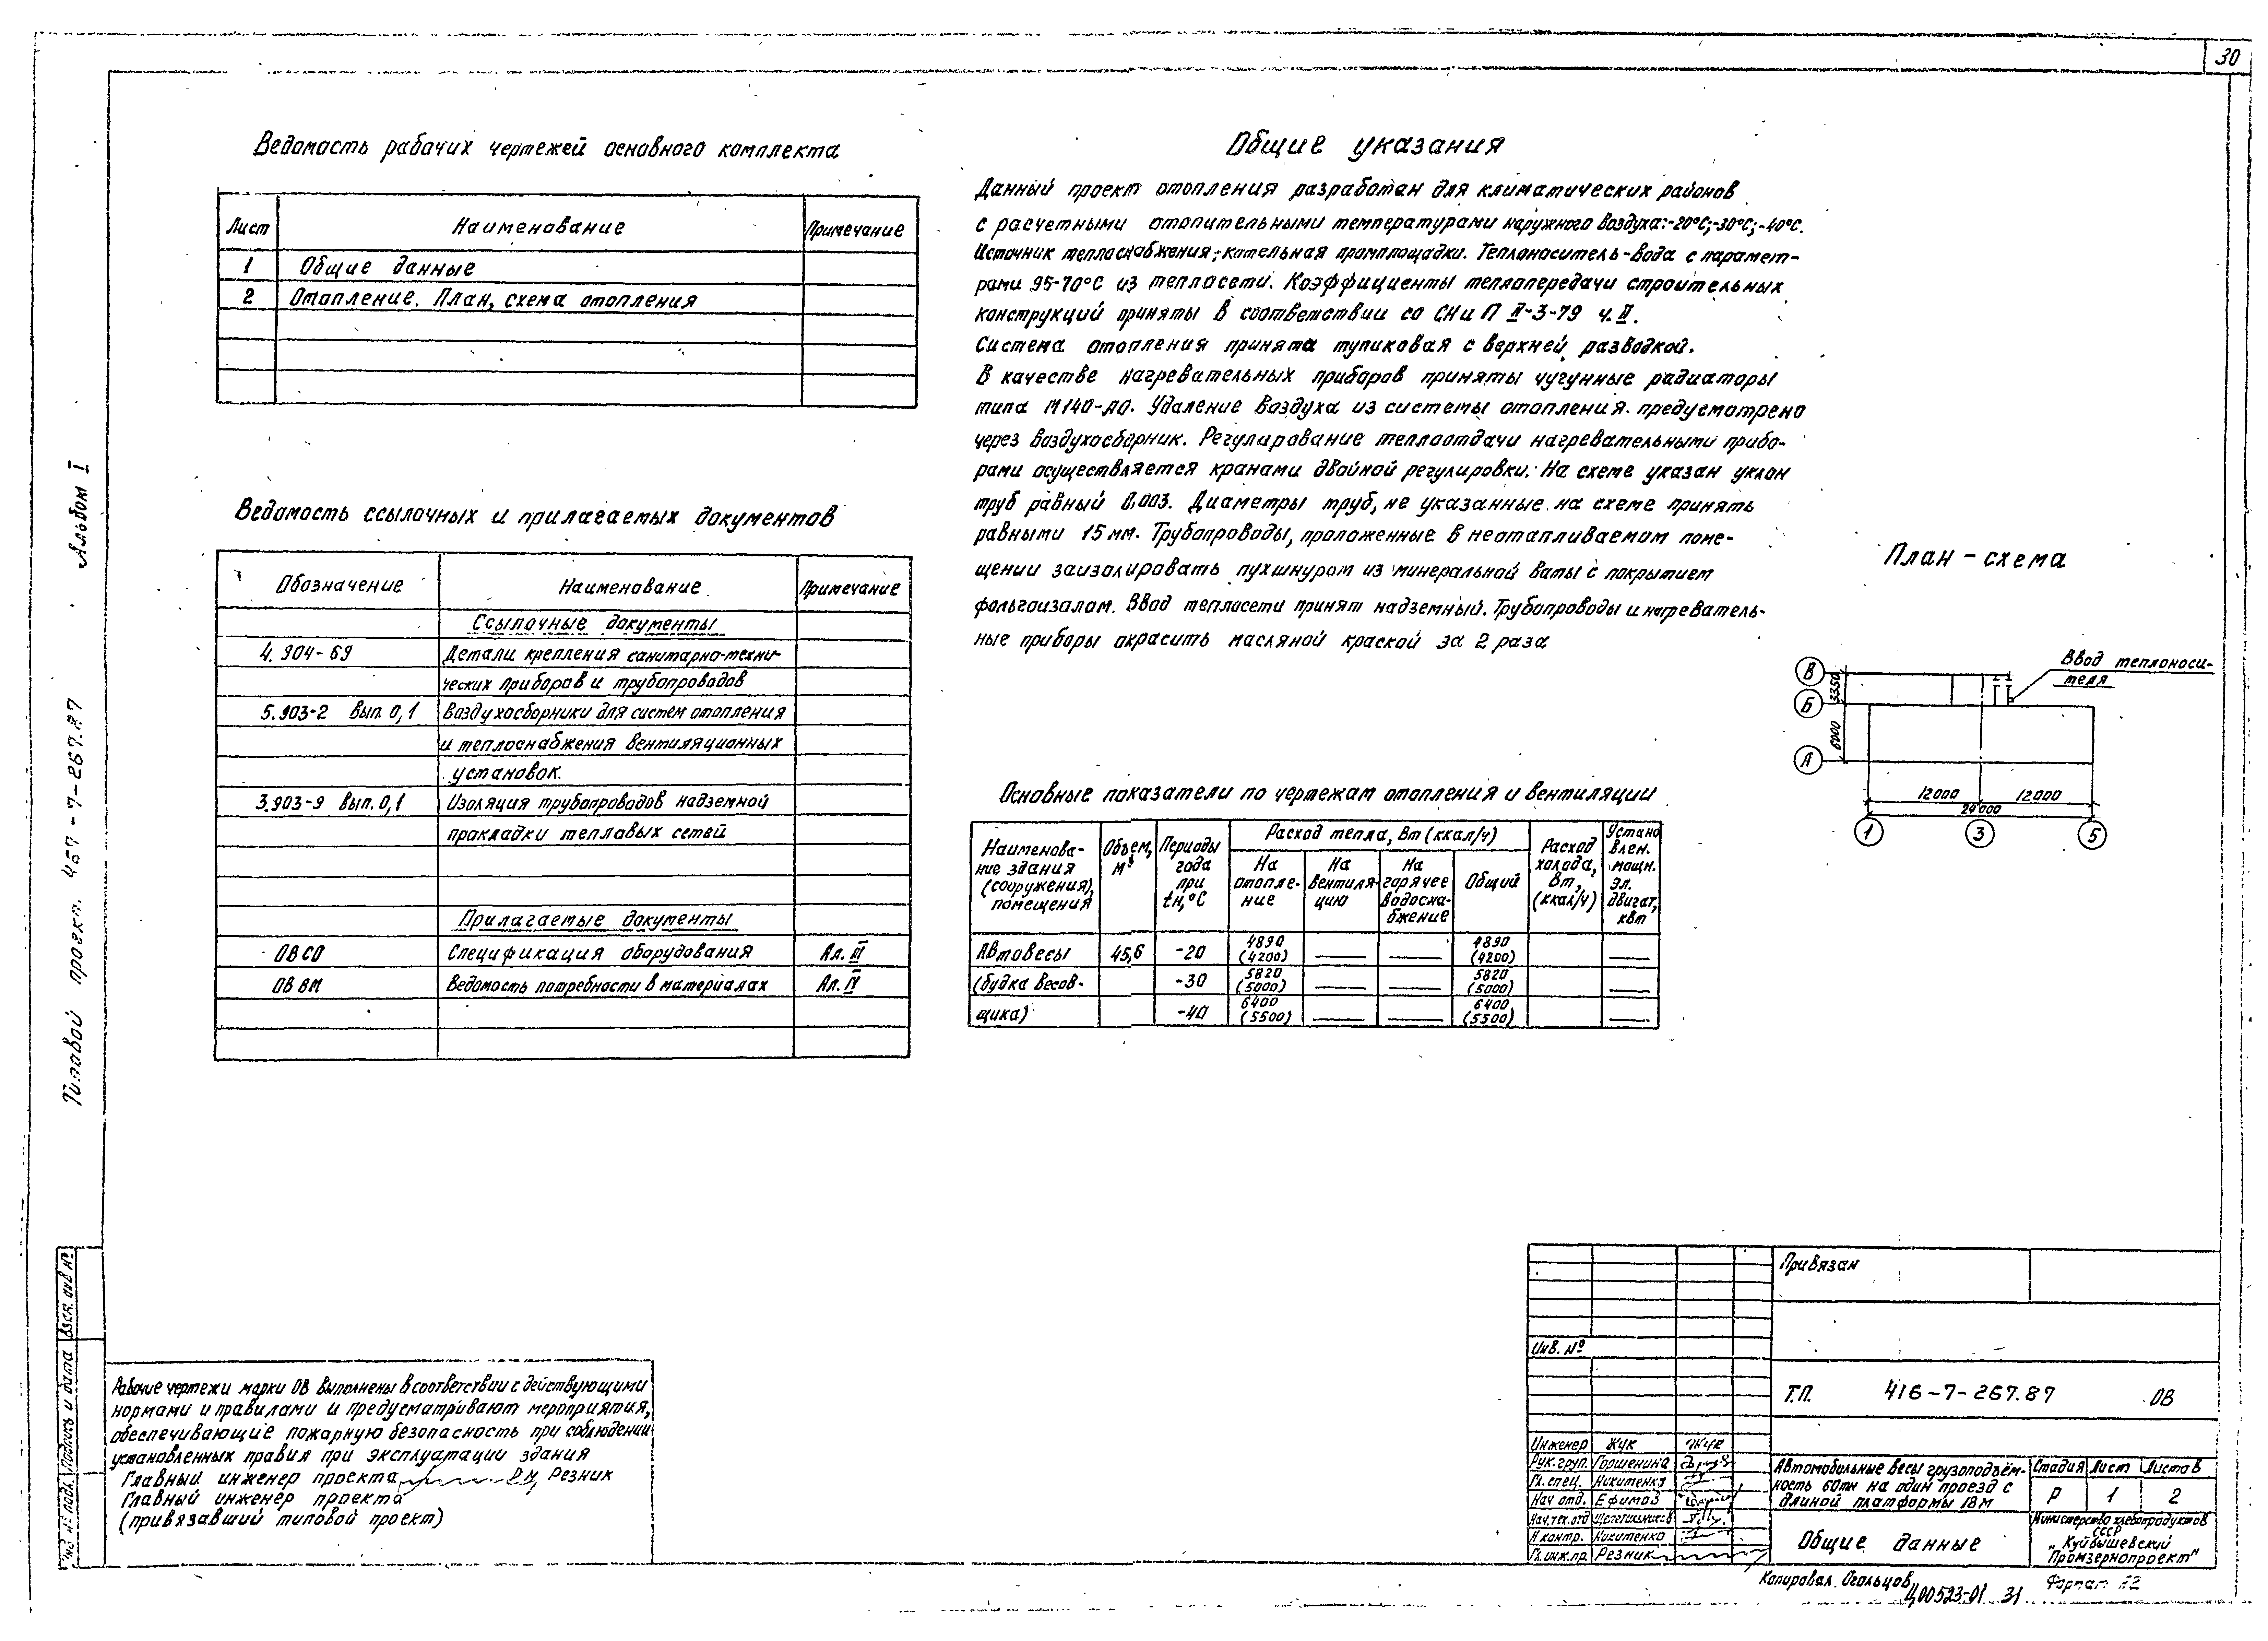 30
Ведомость рабочих чертежей основного комплекта
Лист Наименование Примечание
1 Общие данные
2 Отопление. План, схема отопления
Ведомость ссылочных и прилагаемых документов
Обозначение Наименование Примечание
Ссылочные документы
4.904-69 Детали крепления санитарно-техни-
ческих приборов и трубопроводов
5.903-2 Вып. 0,1 Воздухосборники для систем отопления
и теплоснабжения вентиляционных
установок.
3.903-9 вып. 0,1 Изоляция трубопроводов надземной
прокладки тепловых сетей
Прилагаемые документы
ОВ СО Спецификация оборудования Ал. III
ОВ ВМ Ведомость потребности в материалах Ал. IV
Общие указания
Данный проект отопления разработан для климатических районов
с расчетными отопительными температурами наружного воздуха:-20°С;-30°С;-40°С.
Источник теплоснабжения - котельная промплощадки. Теплоноситель-вода с парамет-
рами 95-70°С из теплосети. Коэффициенты теплопередачи строительных
конструкций приняты в соответствии со СНиП II-3-79 ч. II.
Система отопления принята тупиковая с верхней разводкой.
В качестве нагревательных приборов приняты чугунные радиаторы
типа М140-АО. Удаление воздуха из системы отопления предусмотрено
через воздухосборник. Регулирование теплоотдачи нагревательными прибо-
рами осуществляется кранами двойной регулировки. На схеме указан уклон
труб равный 0,003. Диаметры труб, не указанные на схеме принять
равными 15 мм. Трубопроводы, проложенные в неотапливаемом поме-
щении заизолировать пухшнуром из минеральной ваты с покрытием
фольгоизолом. Ввод теплосети принят надземный. Трубопроводы и нагреватель-
ные приборы окрасить масляной краской за 2 раза
Основные показатели по чертежам отопления и вентиляции
Наименова-
ние здания
(сооружения),
помещения
Объем, м³
Периоды
года
при
tн,°С
Расход тепла, Вт (ккал/ч)
На
отопле-
ние
На
вентиля-
цию
На
горячее
водосна-
бжение
Общий
Расход
холода,
Вт,
(ккал/ч)
Устано
влен.
мощн.
эл.
двигат,
квт
Автовесы 45,6 -20 4890 (4200) — — 4890 (4200) —
(будка весов- -30 5820 (5000) — — 5820 (5000) —
щика) -40 6400 (5500) — — 6400 (5500) —
План-схема
Ввод теплоноси-
теля
В
Б
А
3350
6000
12000 12000
24000
1 3 5
Альбом I
Типовой проект 467-7-267.87
Взам. инв №
Подпись и дата
Инв № подл.
Рабочие чертежи марки ОВ выполнены в соответствии с действующими
нормами и правилами и предусматривают мероприятия,
обеспечивающие пожарную безопасность при соблюдении
установленных правил при эксплуатации здания
Главный инженер проекта Резник
Главный инженер проекта
(привязавший типовой проект)
Привязан
Инв. №
Т.П. 416-7-267.87 ОВ
Инженер Жук
Рук. груп. Горшенина
Гл. спец. Никитенко
Нач отд. Ефимов
Нач.тех.отд
Н контр. Никитенко
Гл. инж. пр. Резник
Автомобильные весы грузоподъём-
ность 60тн на один проезд с
длиной платформы 18м
Стадия Лист Листов
Р 1 2
Общие данные
Министерство хлебопродуктов
СССР
„Куйбышевский
Промзернопроект"
Копировал Огольцов
Ц00523-01 31
Формат А2